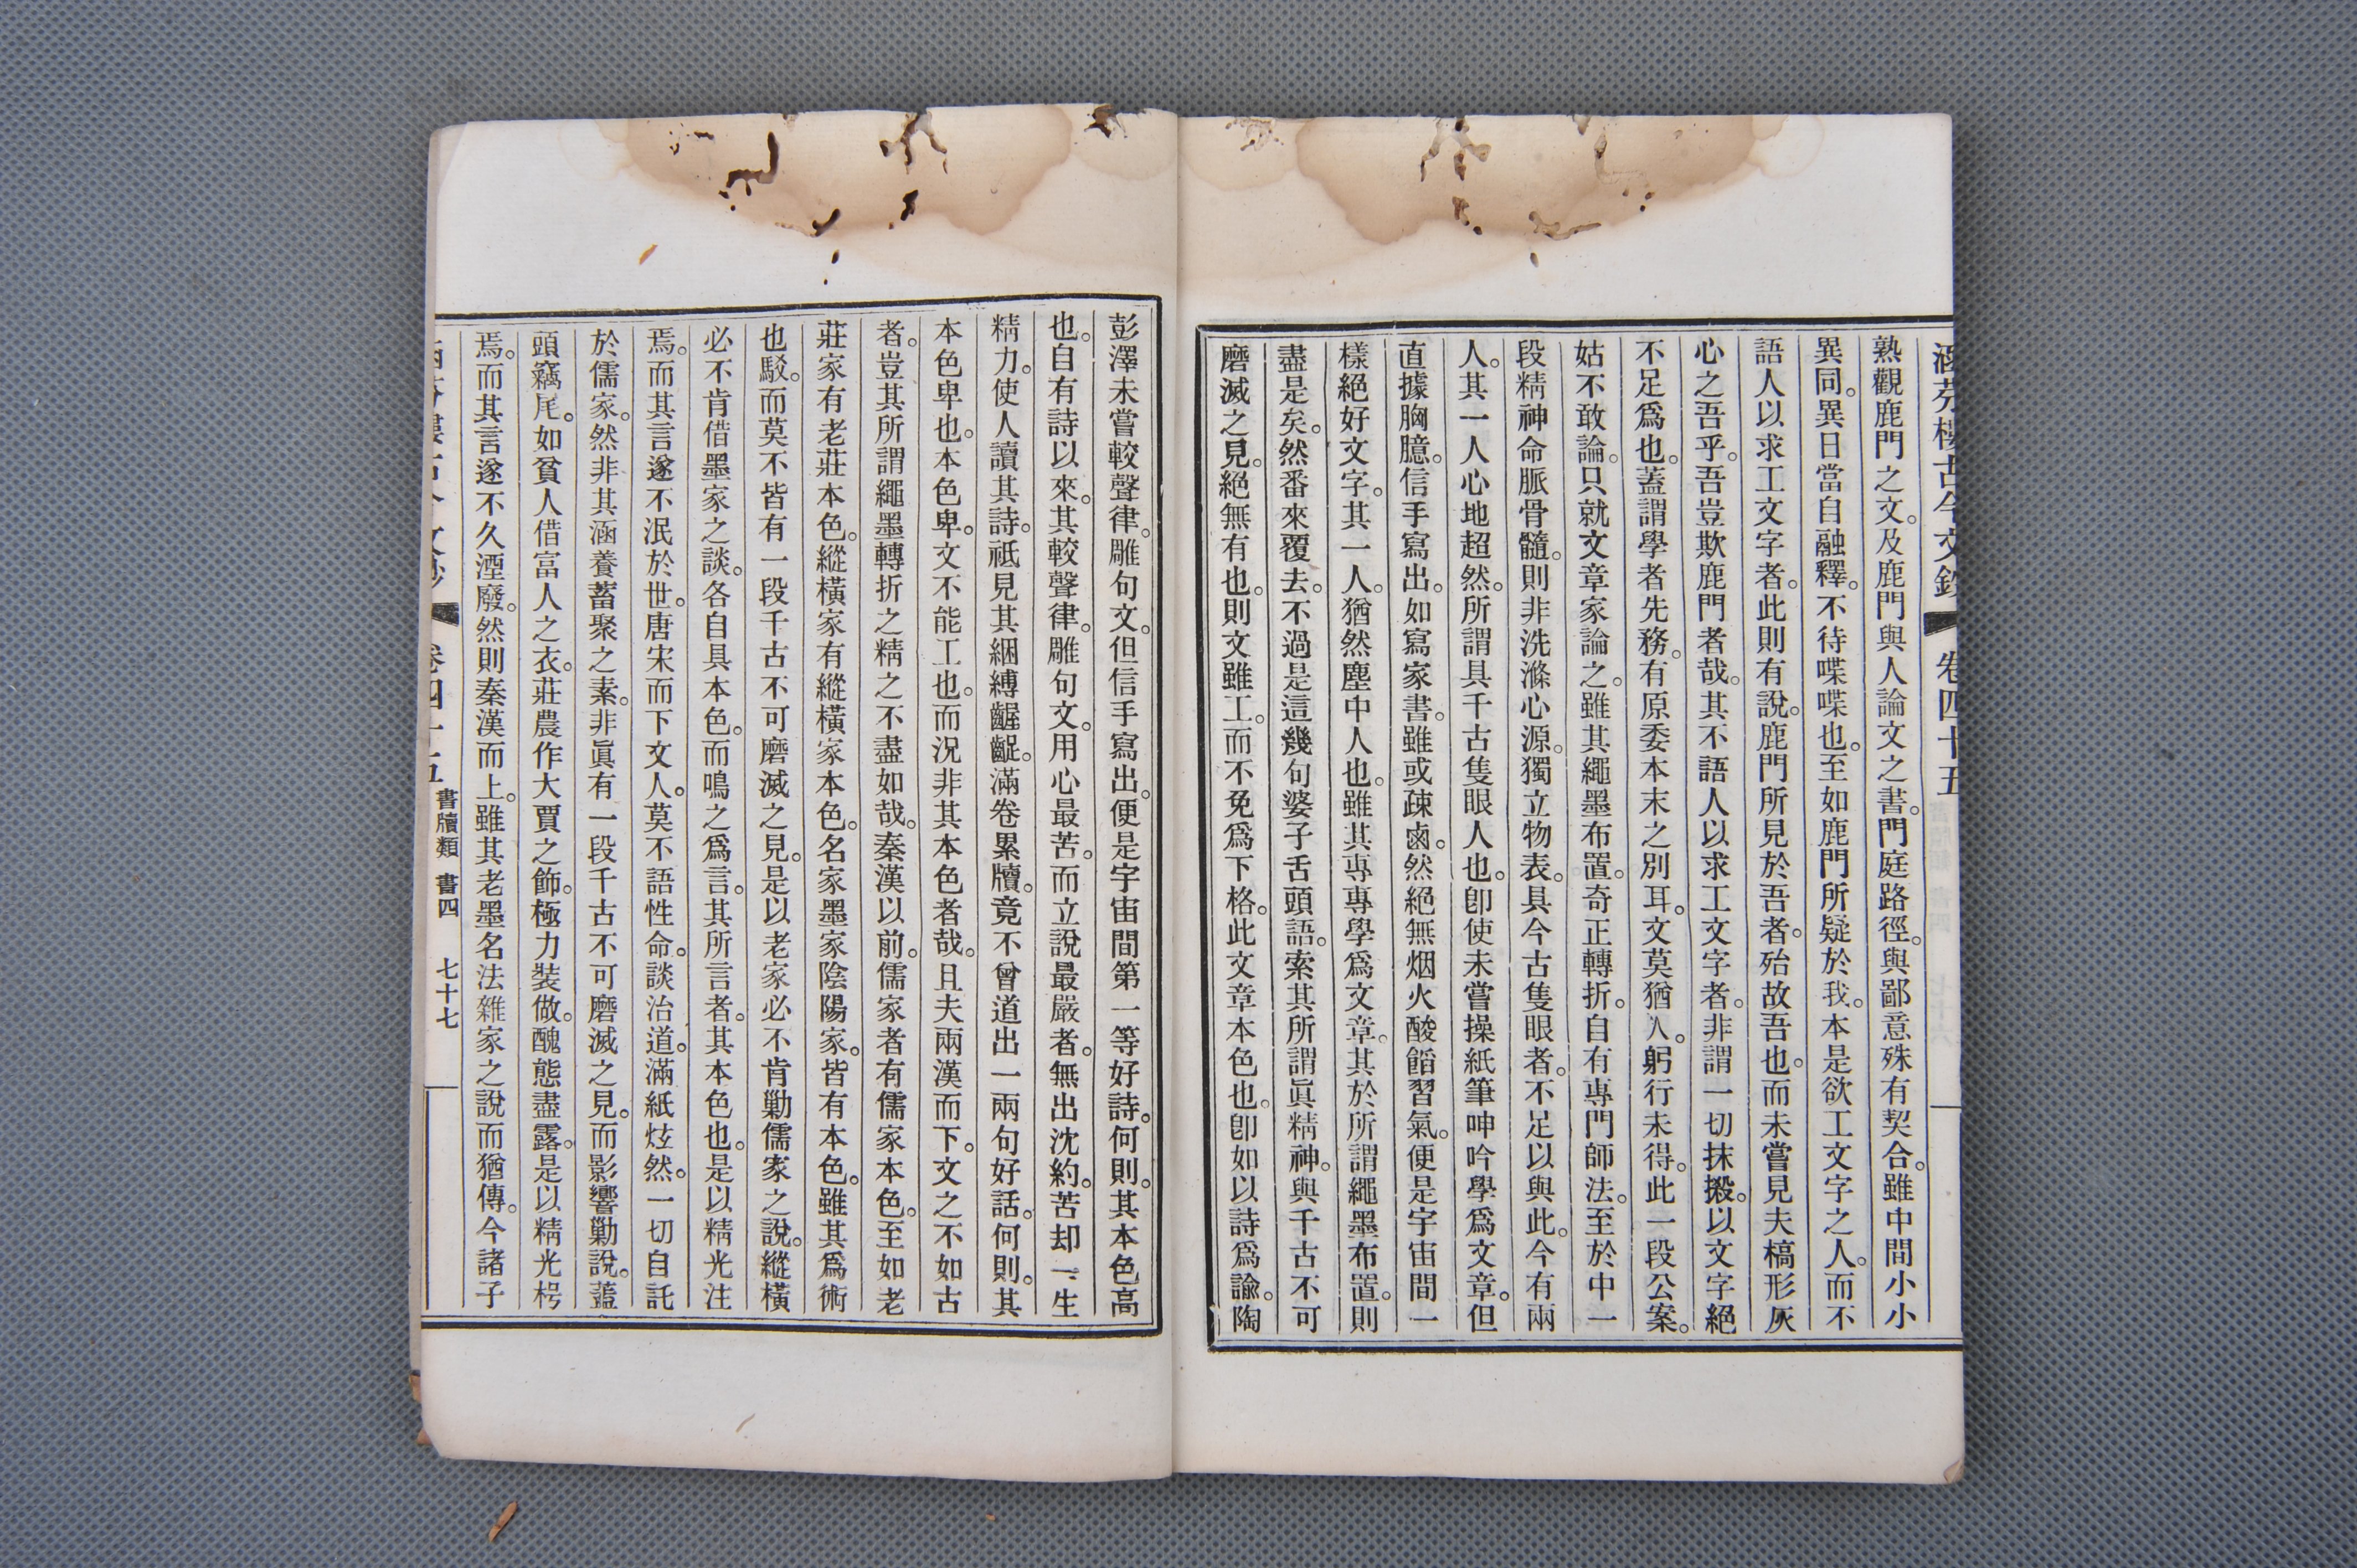 涵芬樓古今文鈔 卷四十五
熟觀鹿門之文。及鹿門與人論文之書。門庭路徑。與鄙意殊有契合。雖中間小小
異同。異日當自融釋。不待喋喋也。至如鹿門所疑於我。本是欲工文字之人。而不
語人以求工文字者。此則有說。鹿門所見於吾者。殆故吾也。而未嘗見夫槁形灰
心之吾乎。吾豈欺鹿門者哉。其不語人以求工文字者。非謂一切抹搬。以文字絕
不足爲也。蓋謂學者先務。有原委本末之別耳。文莫猶人。躬行未得。此一段公案。
姑不敢論。只就文章家論之。雖其繩墨布置。奇正轉折。自有專門師法。至於中一
段精神命脈骨髓。則非洗滌心源。獨立物表。具今古隻眼者。不足以與此。今有兩
人。其一人心地超然。所謂具千古隻眼人也。卽使未嘗操紙筆呻吟學爲文章。但
直據胸臆。信手寫出。如寫家書。雖或疎鹵。然絕無烟火酸餡習氣。便是宇宙間一
樣絕好文字。其一人。猶然塵中人也。雖其專專學爲文章。其於所謂繩墨布置。則
盡是矣。然番來覆去。不過是這幾句婆子舌頭語。索其所謂眞精神。與千古不可
磨滅之見。絕無有也。則文雖工。而不免爲下格。此文章本色也。卽如以詩爲諭。陶
彭澤未嘗較聲律。雕句文。但信手寫出。便是宇宙間第一等好詩。何則。其本色高
也。自有詩以來。其較聲律。雕句文。用心最苦。而立說最嚴者。無出沈約。苦却一生
精力。使人讀其詩。祗見其綑縛齷齪。滿卷累牘。竟不曾道出一兩句好話。何則。其
本色卑也。本色卑。文不能工也。而況非其本色者哉。且夫兩漢而下。文之不如古
者。豈其所謂繩墨轉折之精之不盡如哉。秦漢以前。儒家者有儒家本色。至如老
莊家有老莊本色。縱橫家有縱橫家本色。名家墨家陰陽家。皆有本色。雖其爲術
也駁。而莫不皆有一段千古不可磨滅之見。是以老家必不肯勦儒家之說。縱橫
必不肯借墨家之談。各自具本色。而鳴之爲言。其所言者。其本色也。是以精光注
焉。而其言遂不泯於世。唐宋而下文人。莫不語性命。談治道。滿紙炫然。一切自託
於儒家。然非其涵養蓄聚之素。非眞有一段千古不可磨滅之見。而影響勦說。蓋
頭竊尾。如貧人借富人之衣。莊農作大賈之飾。極力裝做。醜態盡露。是以精光枵
焉。而其言遂不久湮廢。然則秦漢而上。雖其老墨名法雜家之說而猶傳。今諸子
卷四十五 書牘類 書四 七十七